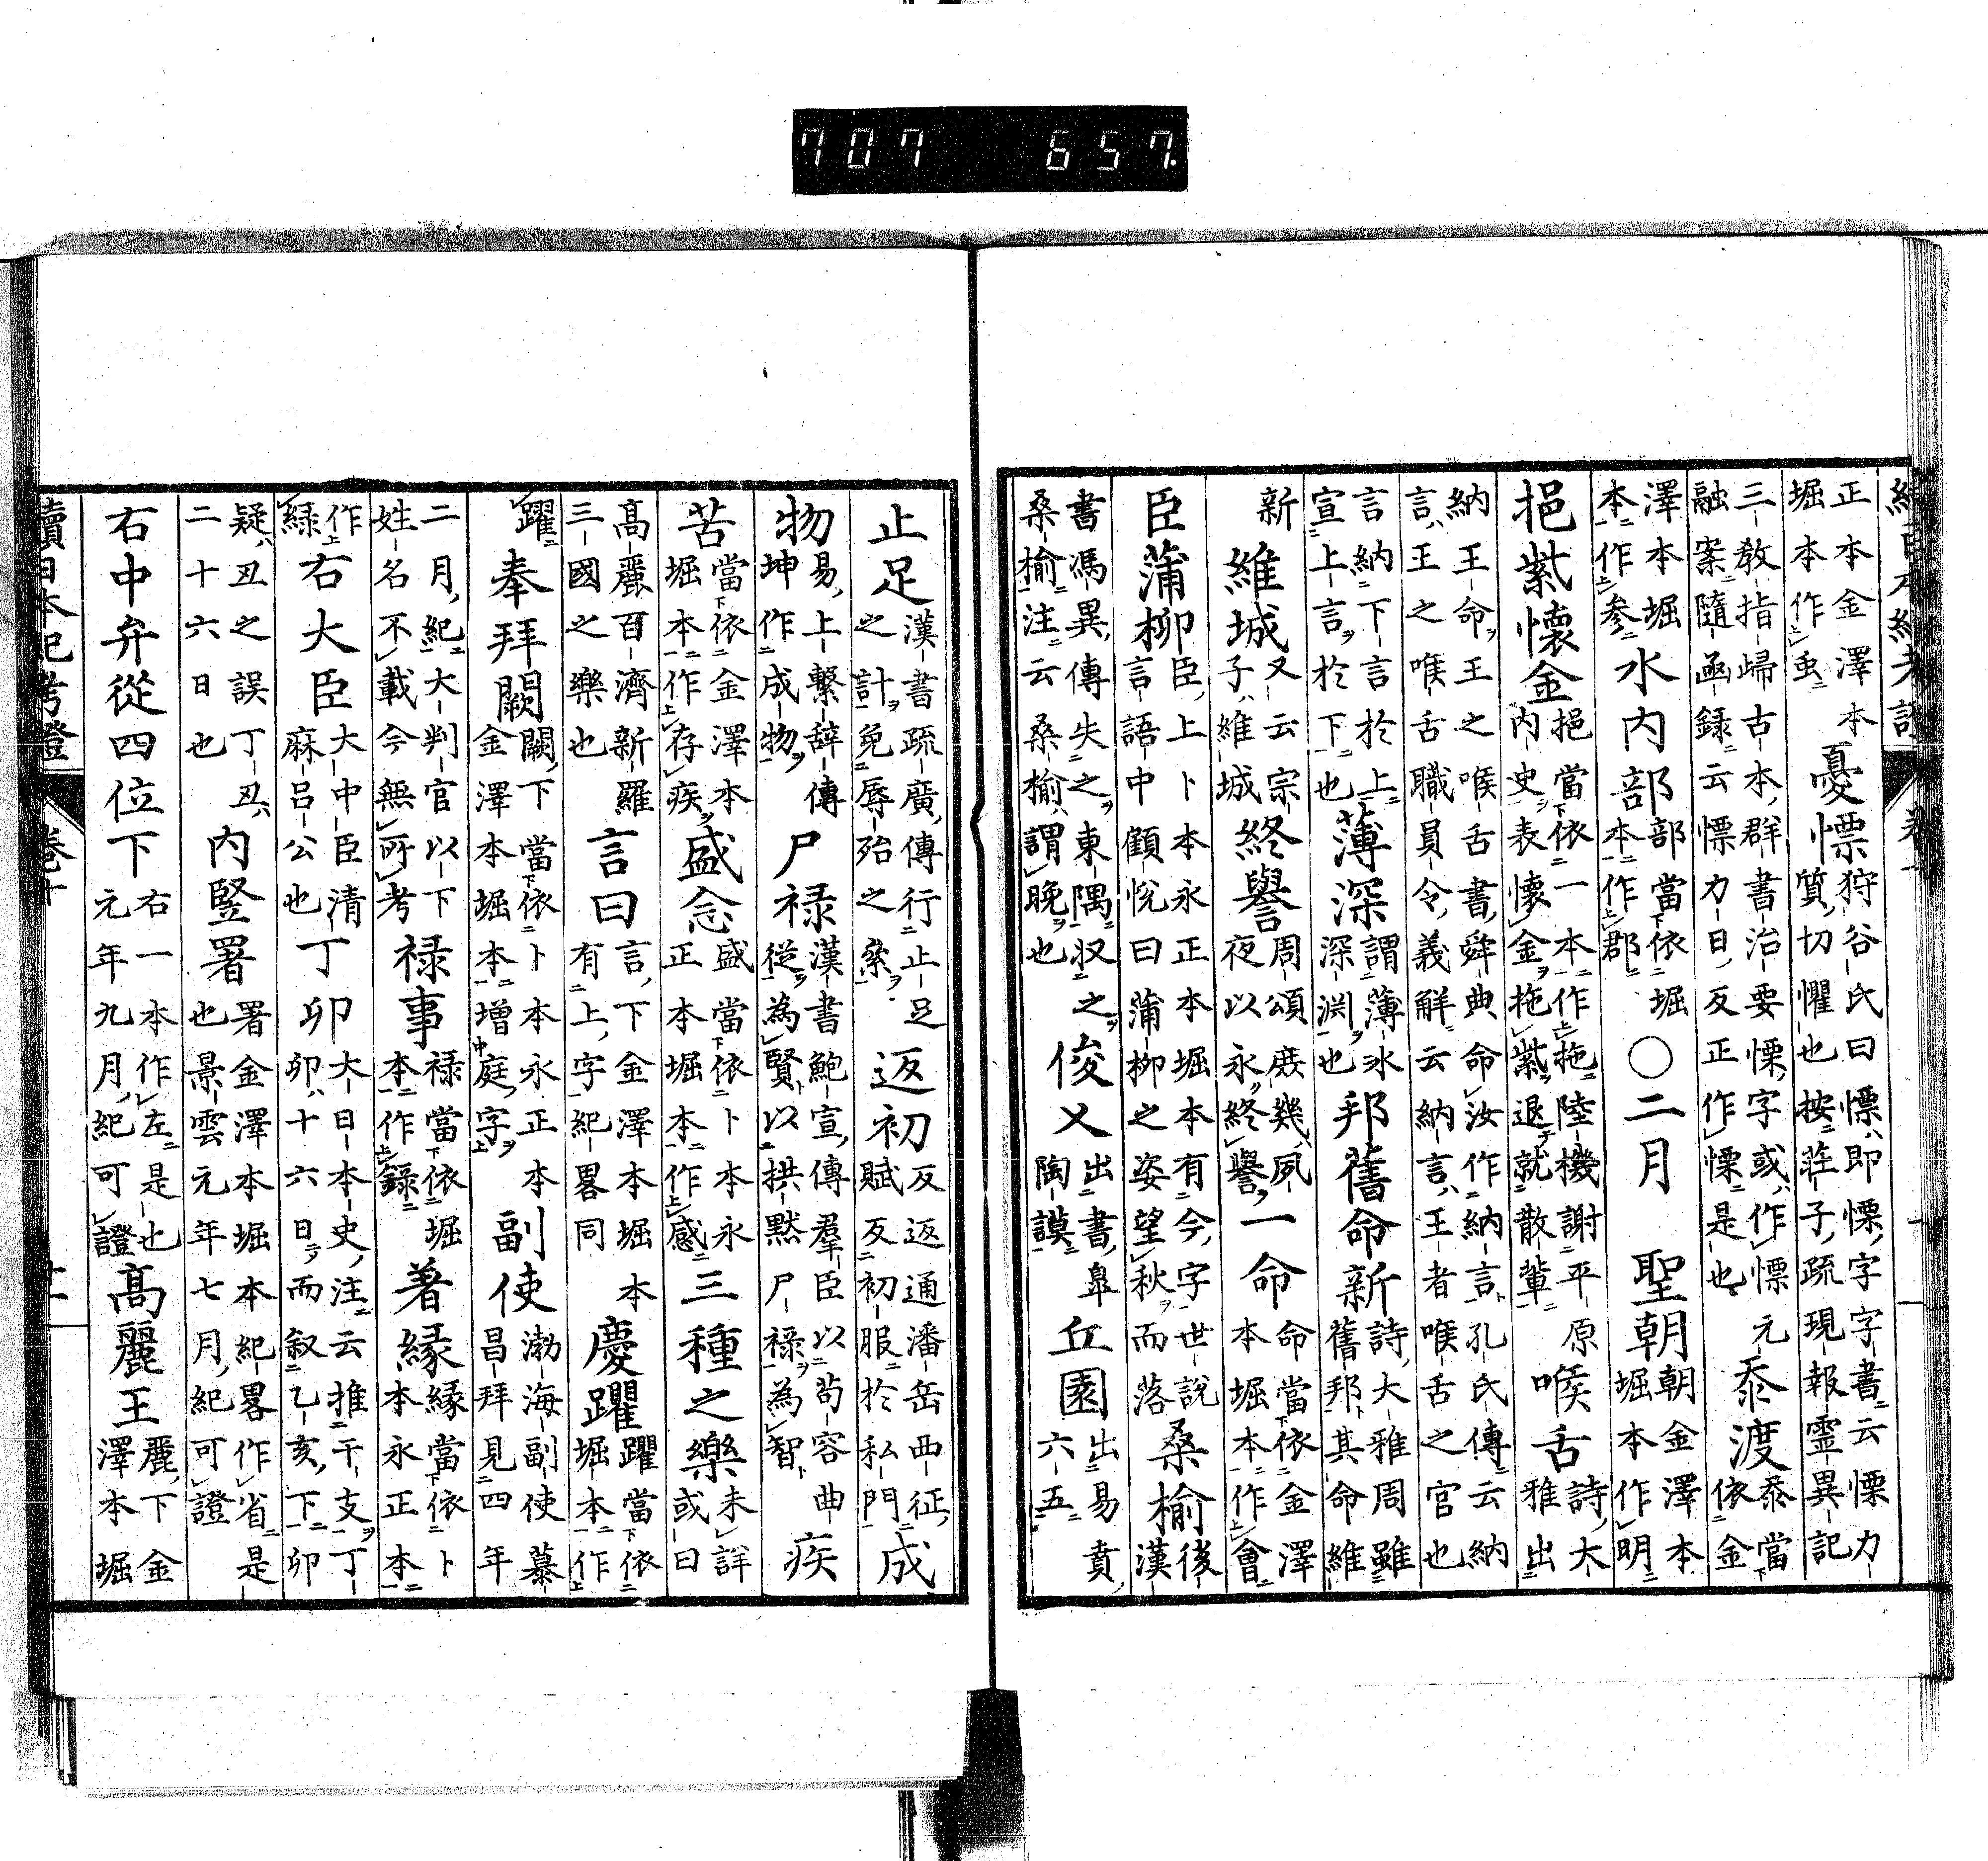 正本金澤本
堀本作虫
憂慓
狩谷氏曰慓即慄字字書云慄力
質切懼也按莊子疏現報靈異記
三教指歸古本群書治要慄字或作慓元
融案隨函録云慓力日反正作慄是也
桼渡
桼當
依金
澤本堀
本作参
水内部
部當依堀
本作郡
○二月 聖朝
朝金澤本
堀本作明
挹紫懷金
挹當依一本作拖陸機謝平原
内史表懷金拖紫退就散輩
喉舌
詩大
雅出
納王命王之喉舌書舜典命汝作納言孔氏傳云納
言王之喉舌職員令義觧云納言王者喉舌之官也
言納下言於上
宣上言於下也
薄深
謂薄氷
深淵也
邦舊命新
詩大雅周雖
舊邦其命維
新
維城
又云宗
子維城
終譽
周頌庶幾夙
夜以永終譽
一命
命當依金澤
本堀本作會
臣蒲柳
臣上卜本永正本堀本有今字世説
言語中顧悦曰蒲柳之姿望秋而落
桑榆
後
漢
書馮異傳失之東隅収之
桑榆注云桑榆謂晩也
俊乂
出書皐
陶謨
丘園
出易賁
六五
止足
漢書疏廣傳行止足
之計免辱殆之累
返初
反返通潘岳西征
賦反初服於私門
成
物
易上繫辭傳
坤作成物
尸禄
漢書鮑宣傳羣臣以苟容曲
從為賢以拱默尸禄為智
疾
苦
當依金澤本
堀本作存疾
盛念
盛當依卜本永
正本堀本作感
三種之樂
未詳
或曰
髙麗百濟新羅
三國之樂也
言曰
言下金澤本堀本
有上字紀畧同
慶躣
躣當依
堀本作
躍
奉拜闕
闕下當依卜本永正本
金澤本堀本增庭字
副使
渤海副使慕
昌拜見四年
二月紀大判官以下
姓名不載今無所考
禄事
禄當依堀
本作録
著縁
縁當依卜
本永正本
作
緑
右大臣
大中臣清
麻呂公也
丁卯
大日本史注云推干支丁
卯十六日而叙乙亥下卯
疑丑之誤丁丑
二十六日也
内竪署
署金澤本堀本紀畧作省是
也景雲元年七月紀可證
右中弁從四位下
右一本作左是也
元年九月紀可證
髙麗王
麗下金
澤本堀
續日本紀考證
卷十
707 657.